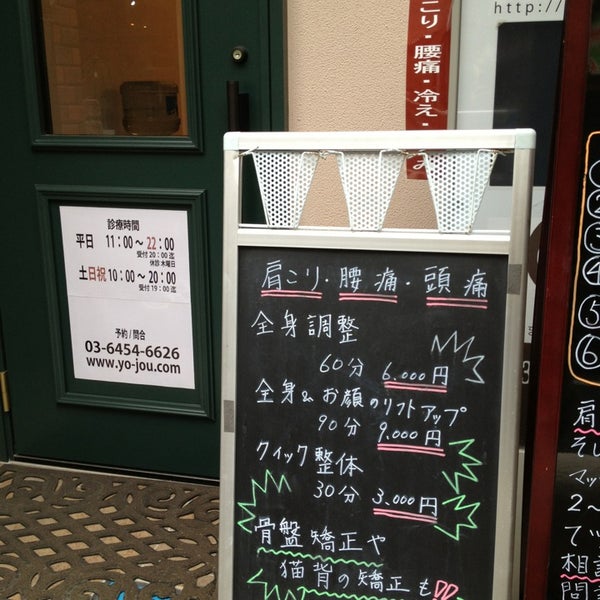 診療時間
平日 11:00～22:00
受付20:00迄
休診 木曜日
土日祝 10:00～20:00
受付19:00迄
予約/問合
03-6454-6626
www.yo-jou.com
http://
こり・腰痛・冷え・
み
肩こり・腰痛・頭痛
全身調整
60分 6,000円
全身&お顔のリフトアップ
90分 9,000円
クイック整体
30分 3,000円
骨盤矯正や
猫背の矯正も
①
②
③
④
⑤
⑥
肩
そし
マッ
2～
てッ
相談
問